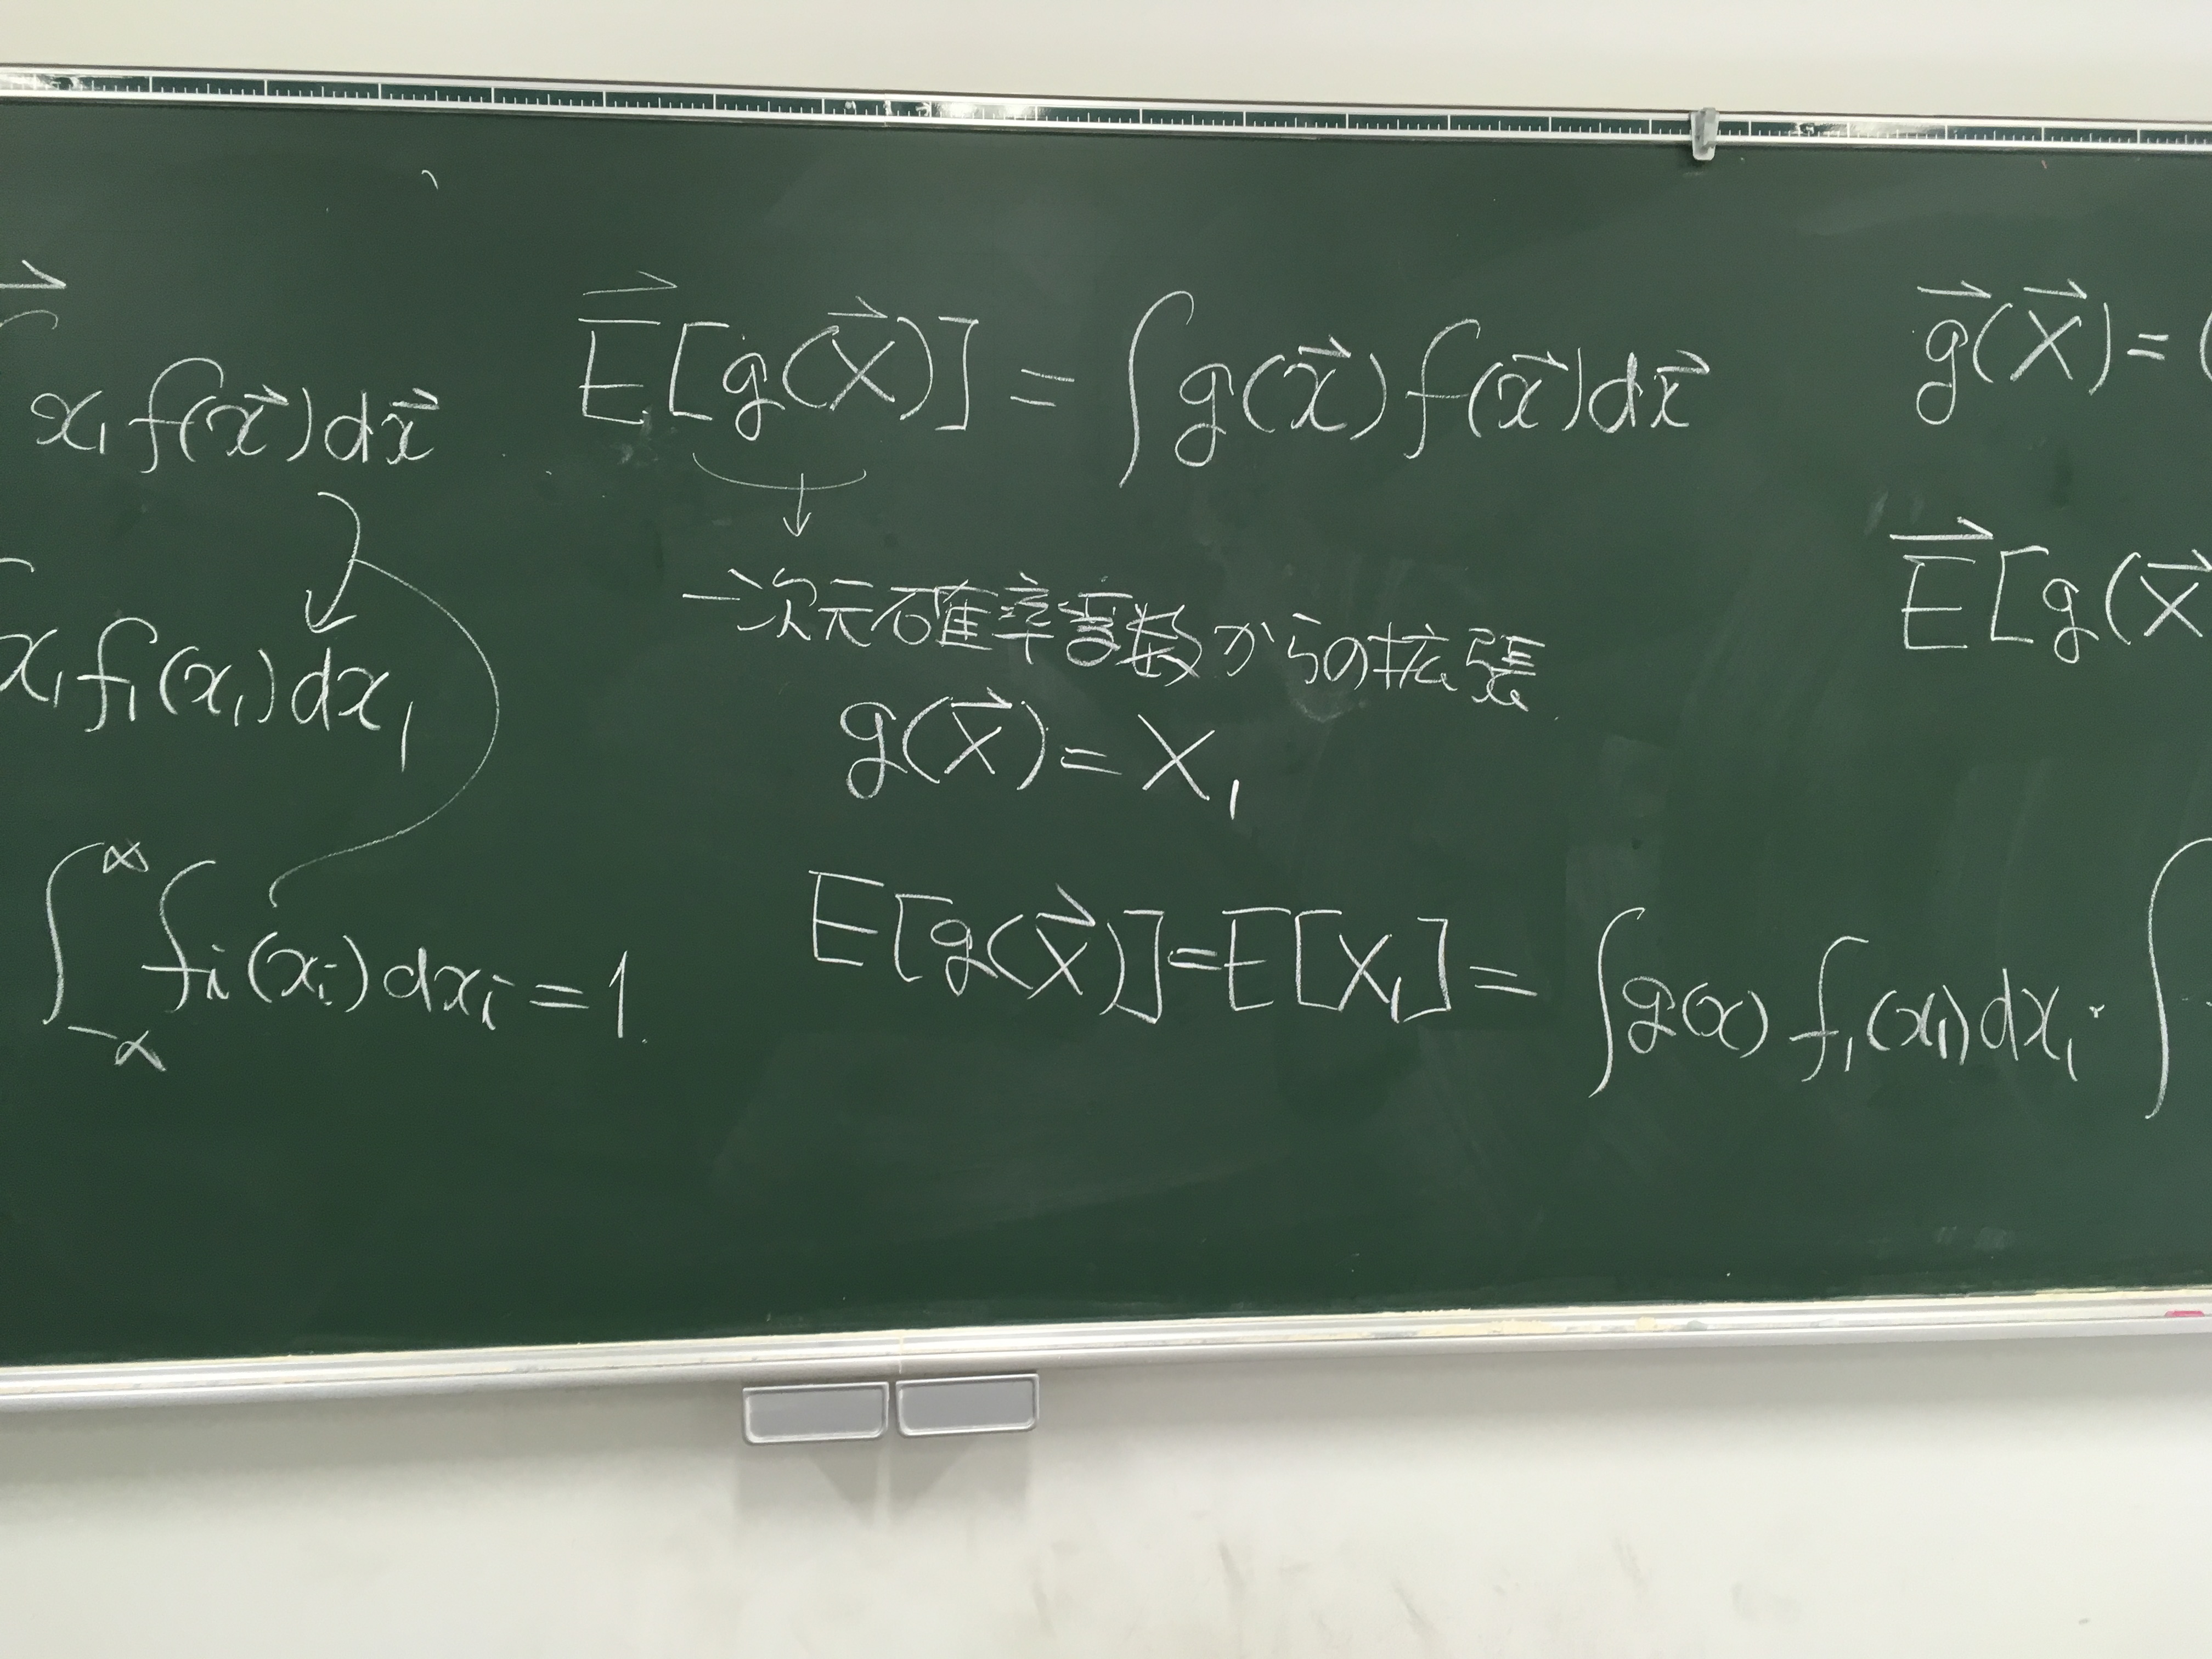 x₁f(x⃗)dx⃗
x₁f₁(x₁)dx₁
∫_{-∞}^{∞} fᵢ(xᵢ)dxᵢ = 1.
E⃗[g(X⃗)] = ∫g(x⃗)f(x⃗)dx⃗
一次元確率変数からの拡張.
g(X⃗) = X₁
E[g(X⃗)] = E[X₁] = ∫g(x)f₁(x₁)dx₁・∫
g⃗(X⃗) = (
E⃗[g(X⃗